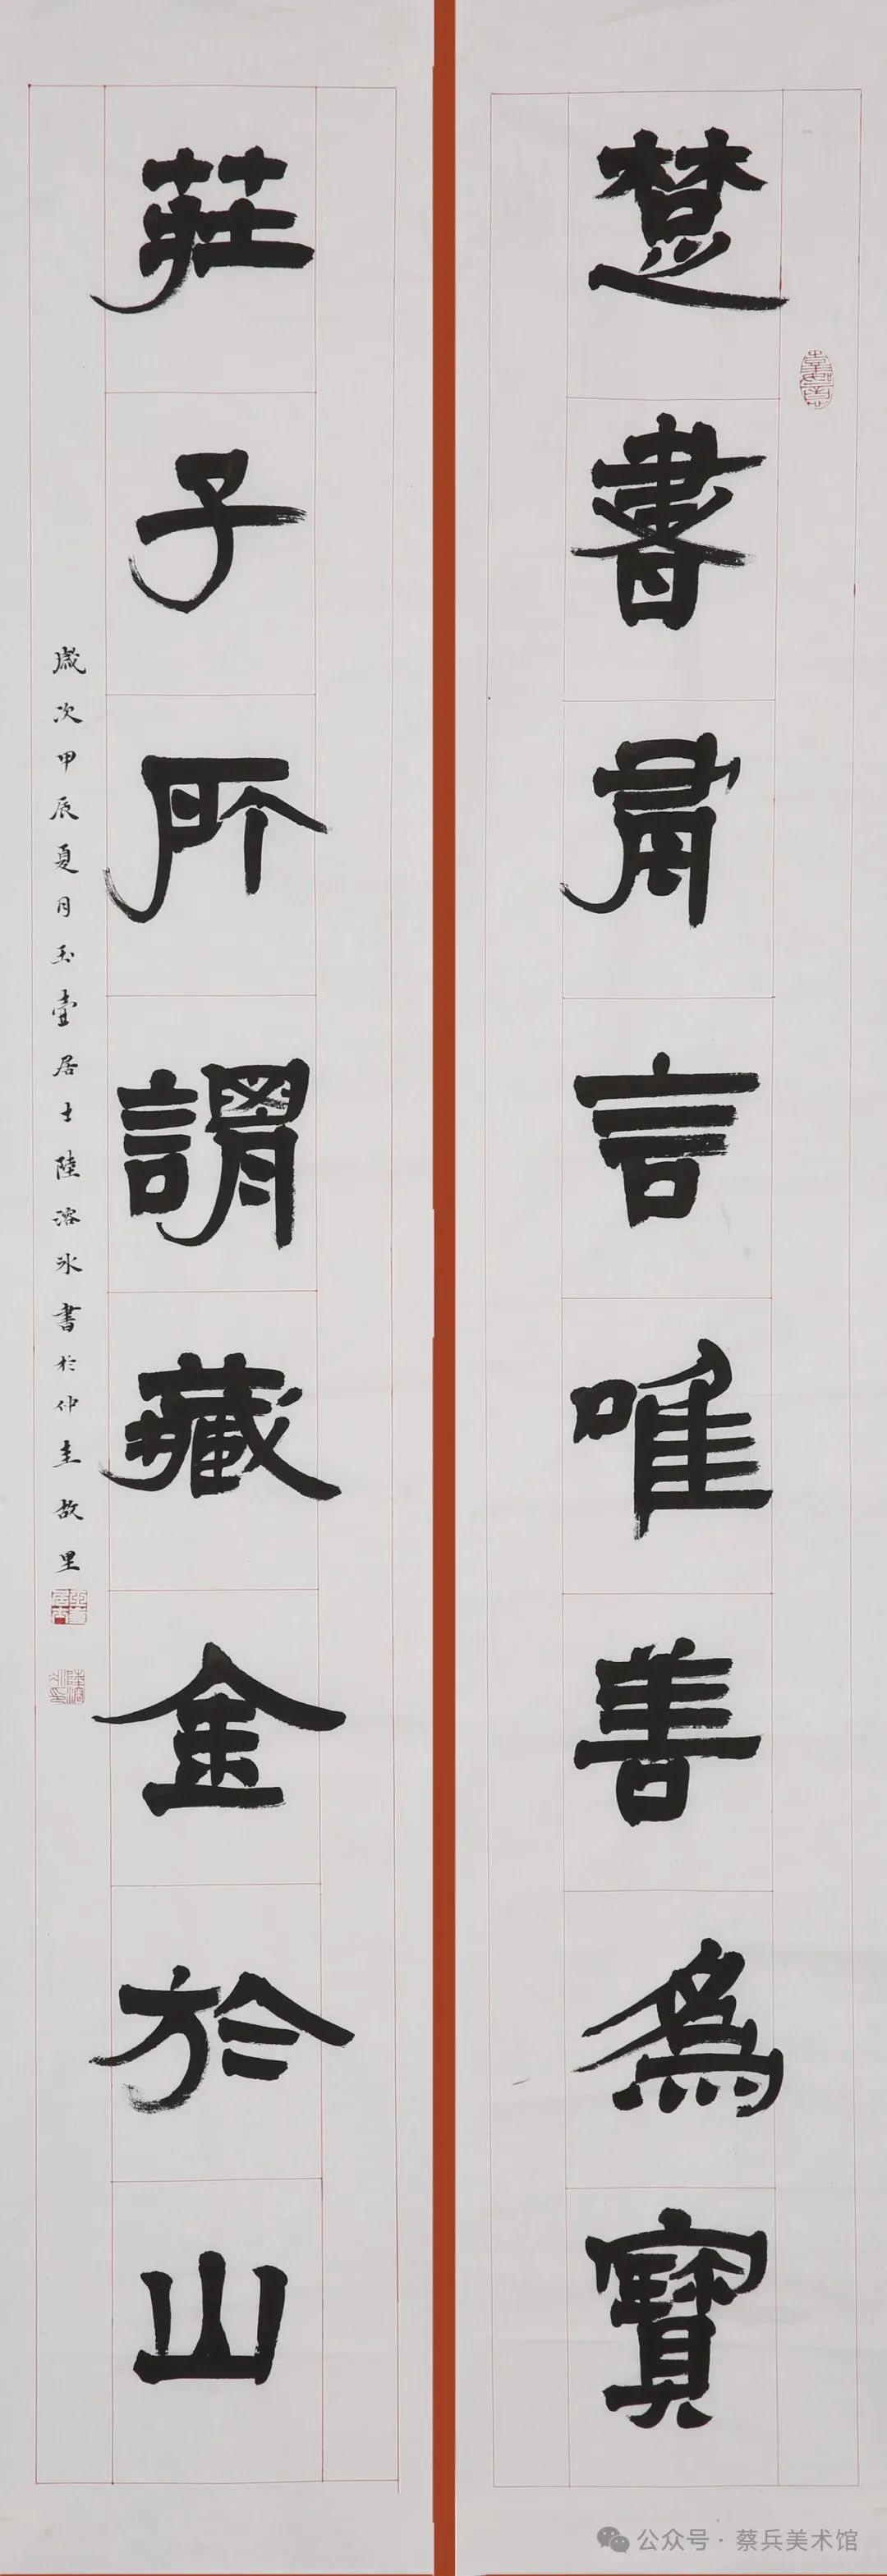 楚書言唯善為寶
莊子所謂藏金於山
歲次甲辰夏月玉壺居士陸溶冰書於仲圭故里
公众号 · 蔡兵美术馆